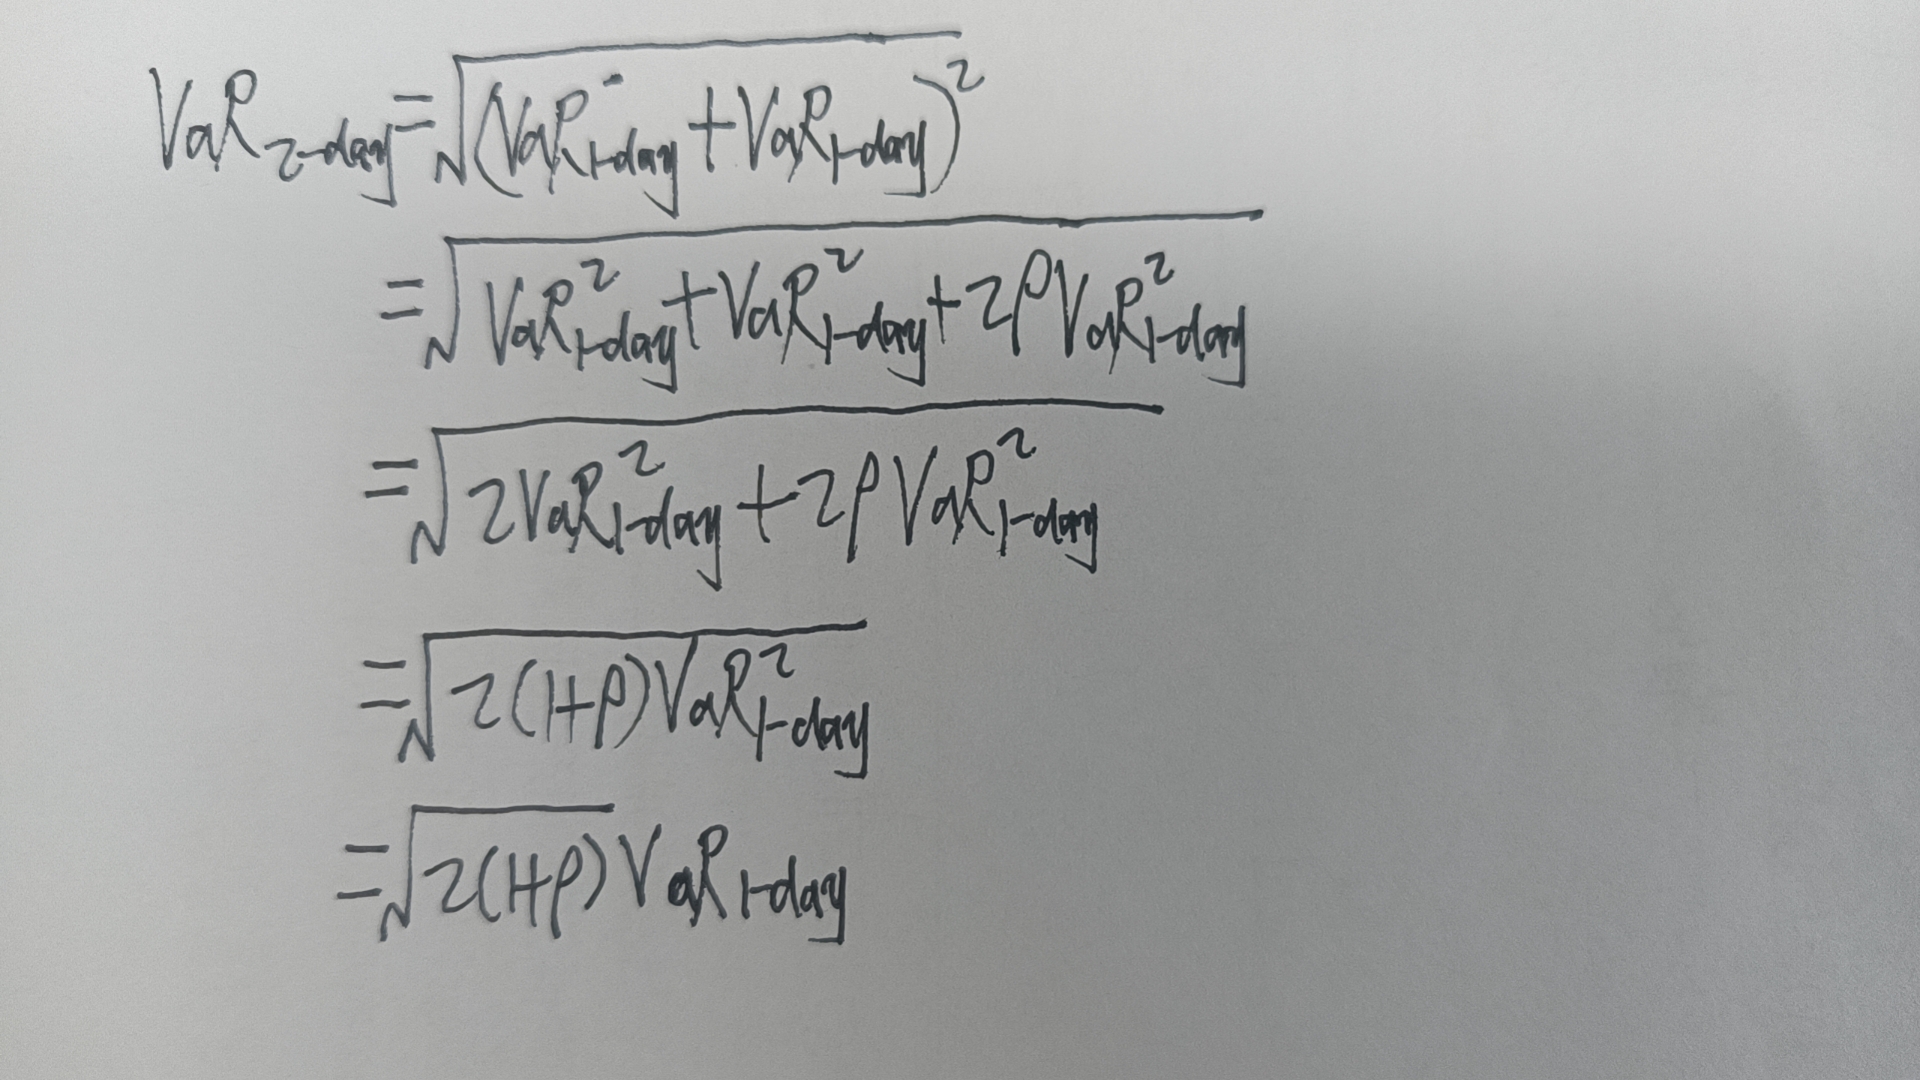 VaR₂₋day = √(VaR₁₋day + VaR₁₋day)²
= √VaR²₁₋day + VaR²₁₋day + 2ρVaR²₁₋day
= √2VaR²₁₋day + 2ρVaR²₁₋day
= √2(1+ρ)VaR²₁₋day
= √2(1+ρ) VaR₁₋day